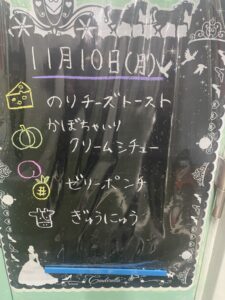 11月10日(月)
のりチーズトースト
かぼちゃいり
クリームシチュー
ゼリーポンチ
ぎゅうにゅう
Cinderella